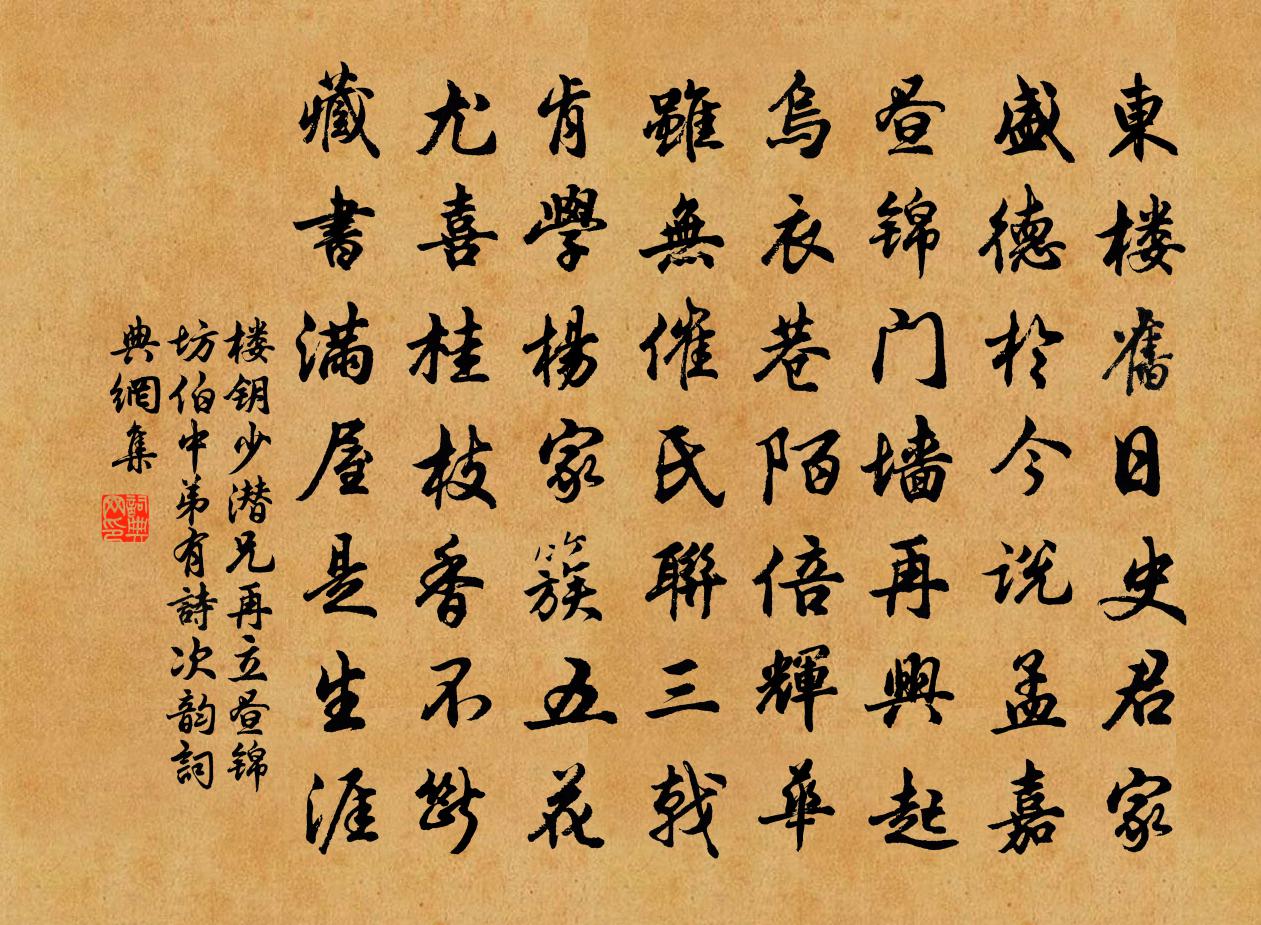 東楼舊日史君家
盛德於今说孟嘉
昼锦门墙再興起
烏衣巷陌倍輝華
雖無催氏聯三戟
肯學楊家簇五花
尤喜桂枝香不斷
藏書满屋是生涯
楼钥少潜兄再立昼锦
坊伯中弟有詩次韵詞
典網集
詞典网印